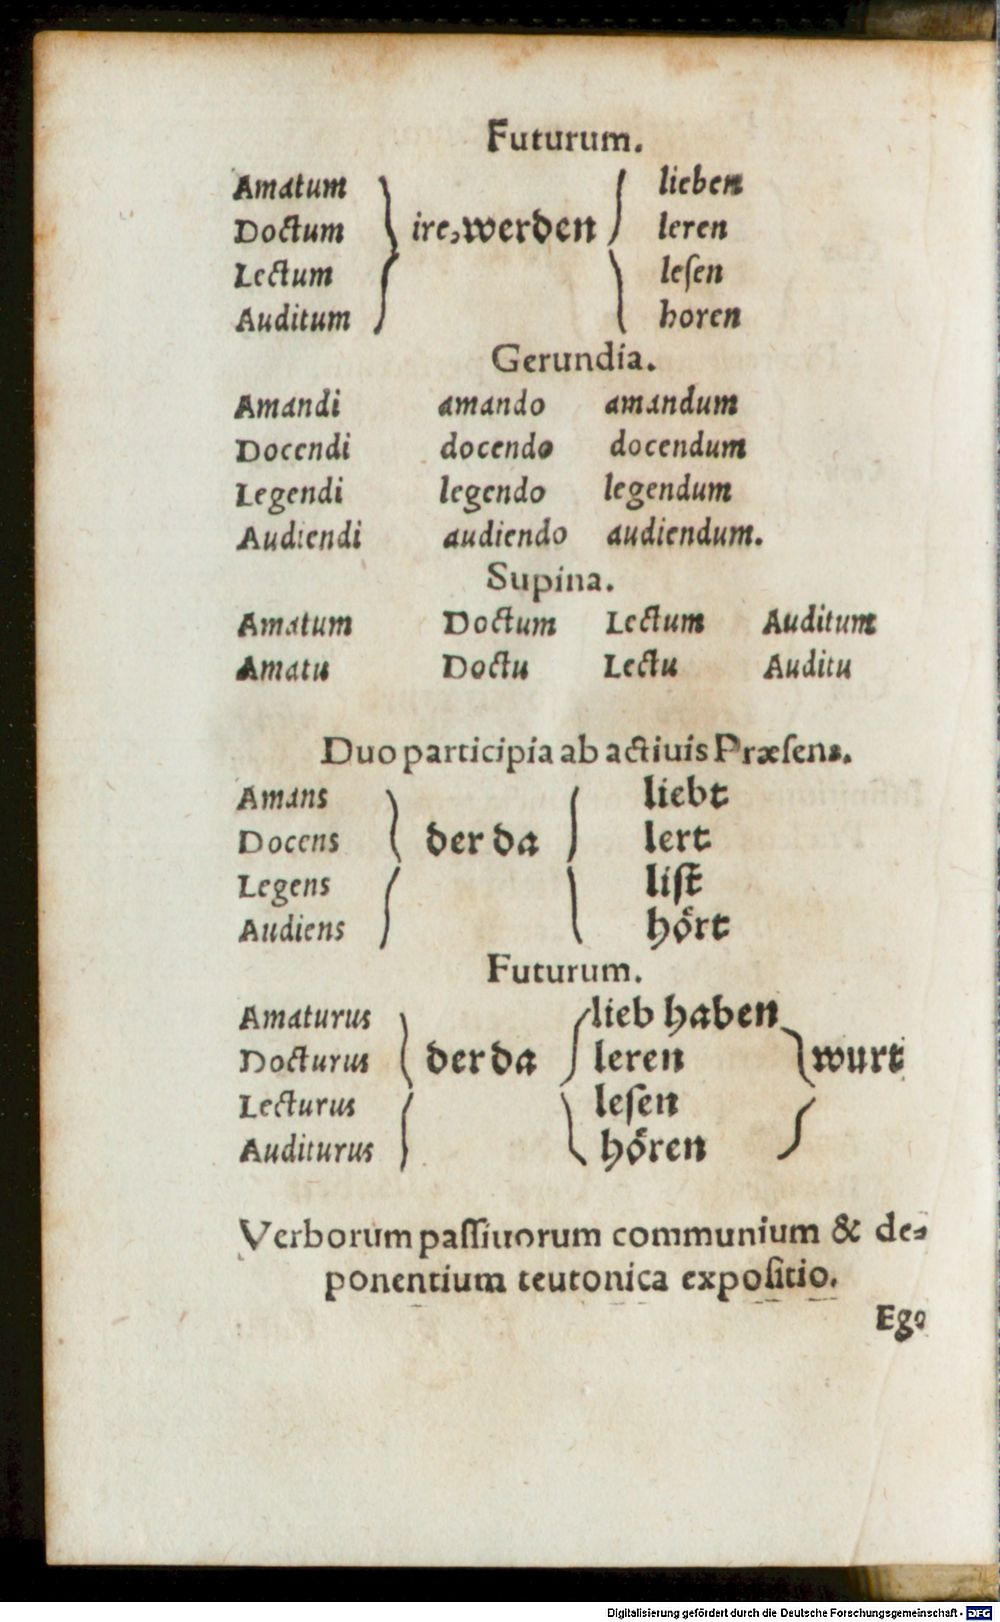 Futurum.
Amatum lieben
Doctum ire, werden leren
Lectum leſen
Auditum horen
Gerundia.
Amandi amando amandum
Docendi docendo docendum
Legendi legendo legendum
Audiendi audiendo audiendum.
Supina.
Amatum Doctum Lectum Auditum
Amatu Doctu Lectu Auditu
Duo participia ab actiuis Præſens.
Amans liebt
Docens der da lert
Legens liſt
Audiens hoͤrt
Futurum.
Amaturus lieb haben
Docturus der da leren wurt
Lecturus leſen
Auditurus hoͤren
Verborum paſſiuorum communium & de⸗
ponentium teutonica expoſitio.
Ego
Digitalisierung gefördert durch die Deutsche Forschungsgemeinschaft - DFG